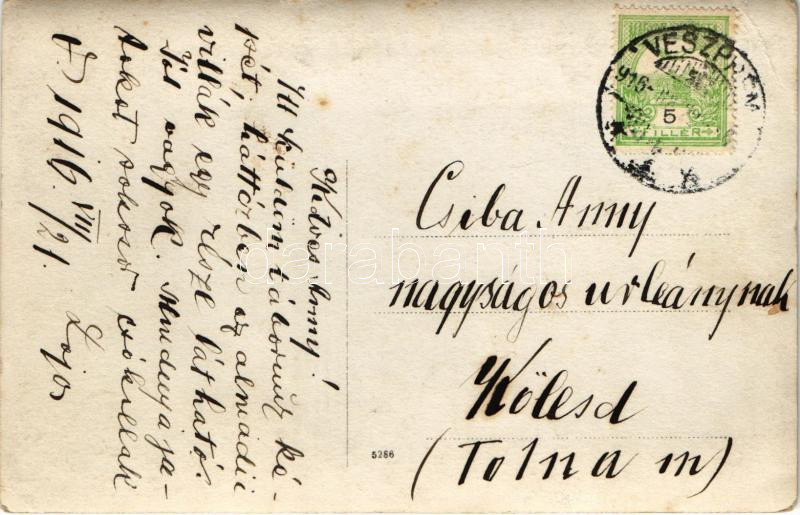 Kedves Anny!
Itt küldöm táborunk ké-
pét, háttérben az almádii
villák egy része látható.
Jól vagyok. Mindnyája-
tokat sokszor csókollak
V. 1916. VIII/21. Lajos
VESZPRÉM
916
5
FILLÉR
Csiba Anny
nagyságos urleánynak
Kölesd
(Tolna m)
5286
darabanth